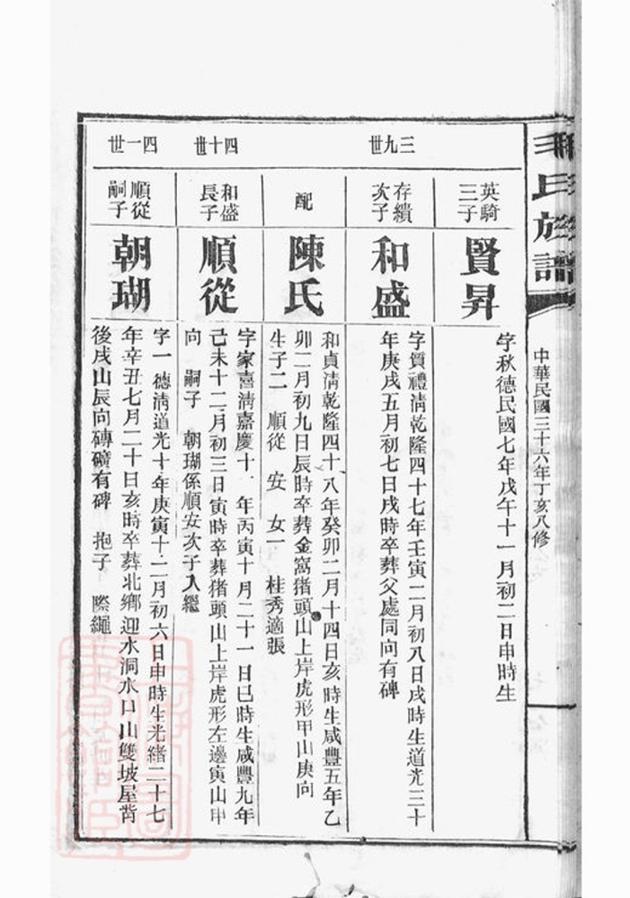 毛氏族譜
中華民國三十六年丁亥八修
三九世
英騎
三子
賢昇
字秋德民國七年戊午十一月初二日申時生
存績
次子
和盛
字質禮清乾隆四十七年壬寅二月初八日戌時生道光三十
年庚戌五月初七日戌時卒葬父處同向有碑
配
陳氏
和貞清乾隆四十八年癸卯二月十四日亥時生咸豐五年乙
卯二月初九日辰時卒葬金窩猪頭山上岸虎形甲山庚向
生子二 順從 安 女一 桂秀適張
四十世
和盛
長子
順從
字家喜清嘉慶十一年丙寅十月二十一日巳時生咸豐九年
己未十二月初三日寅時卒葬猪頭山上岸虎形左邊寅山申
向 嗣子 朝瑚係順安次子入繼
四一世
順從
嗣子
朝瑚
字一德清道光十年庚寅十二月初六日申時生光緒二十七
年辛丑七月二十日亥時卒葬北鄉迎水洞水口山雙坡屋背
後戌山辰向磚礦有碑 抱子 際繩